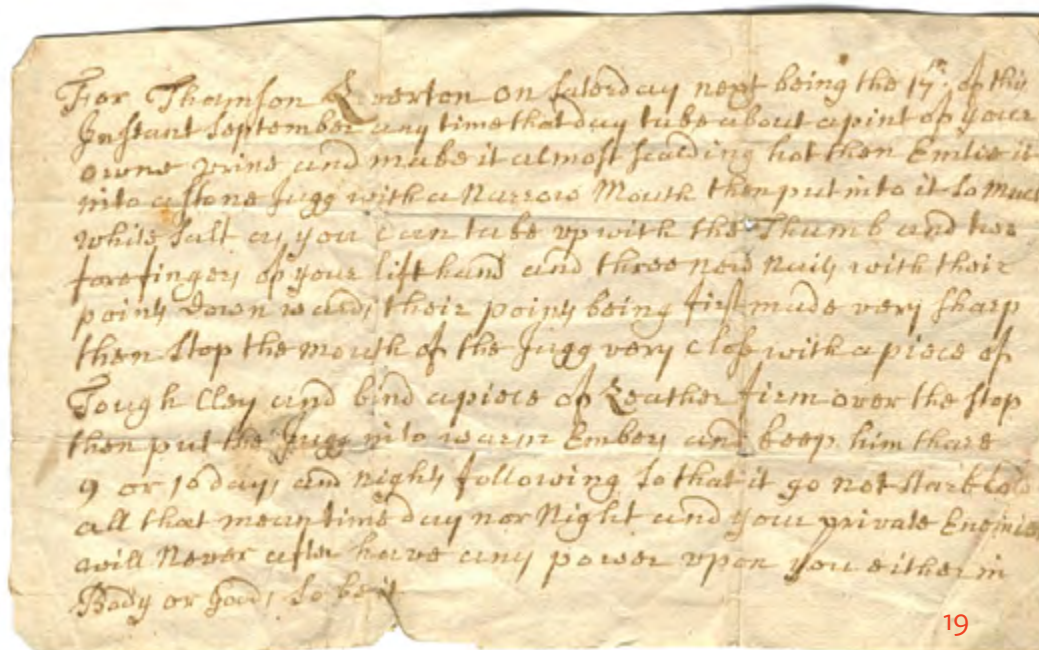 For Thomson Leverton on Saterday next being the 17th. of this
Instant September any time that day take about a pint of your
owne Urine and make it almost scalding hot then Emtie it
into a stone Jugg with a Narrow Mouth then put into it so Much
white Salt as you can take up with the Thumb and two
forefingers of your lift hand and three new nails with their
points down wards, their points being first made very sharp
then stop the mouth of the Jugg very close with a piece of
Tough Cley and bind a piece of Leather firm over the stop
then put the Jugg into warm Embers and keep him there
9 or 10 days and nights following so that it go not stark cold
all that mean time day nor Night and your private Enemies
will Never after have any power upon you either in
Body or Goods, So be it
19